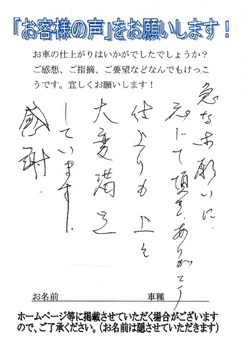 『お客様の声』をお願いします！
お車の仕上がりはいかがでしたでしょうか？
ご感想、ご指摘、ご要望などなんでもけっこ
うです。宜しくお願いします！
急なお願いに
応じて頂き、ありがとう
仕上りも上々
大変満足
しています。
感謝
お名前
車種
ホームページ等に掲載させていただく場合がございます
ので、ご了承ください。（お名前は隠させていただきます）